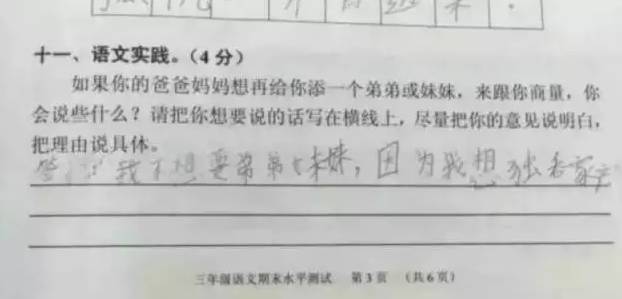 十一、语文实践。（4 分）
如果你的爸爸妈妈想再给你添一个弟弟或妹妹，来跟你商量，你
会说些什么？请把你想要说的话写在横线上，尽量把你的意见说明白，
把理由说具体。
答：我不想要弟弟七妹妹，因为我想独吞家产
三年级语文期末水平测试 第 3 页 （共 6 页）